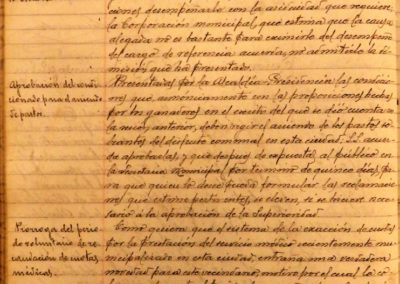 ciones desempeñarlo con la asiduidad que requiere
la Corporación municipal, que estima que la causa
alegada no es bastante para eximirle del desempeño
del cargo de referencia acuerda, no admitirle la di-
misión que ha presentado.
Aprobación del condi-
cionado para el arriendo
de pastos.
Presentadas por la Alcaldía-Presidencia las condicio-
nes que armónicamente con las proposiciones hechas
por los ganaderos en el escrito del que se dió cuenta en
la sesión anterior, deben regir el arriendo de los pastos so-
brantes del disfrute comunal en esta ciudad, S.S. acuer-
da aprobarlas, y que después de expuestas al público en
la Secretaría Municipal por término de quince días, pa-
ra que quien lo desee pueda formular las reclamacio-
nes que estime pertinentes, se eleven, si se hiciere nece-
sario a la aprobación de la Superioridad.
Prorroga del perio-
do voluntario de re-
caudación de cuotas
médicas.
Como quiera que el sistema de la exacción de cuotas
por la prestación del servicio médico recientemente mu-
nicipalizado en esta ciudad, entraña una verdadera
novedad para este vecindario, motivo por el cual la co-